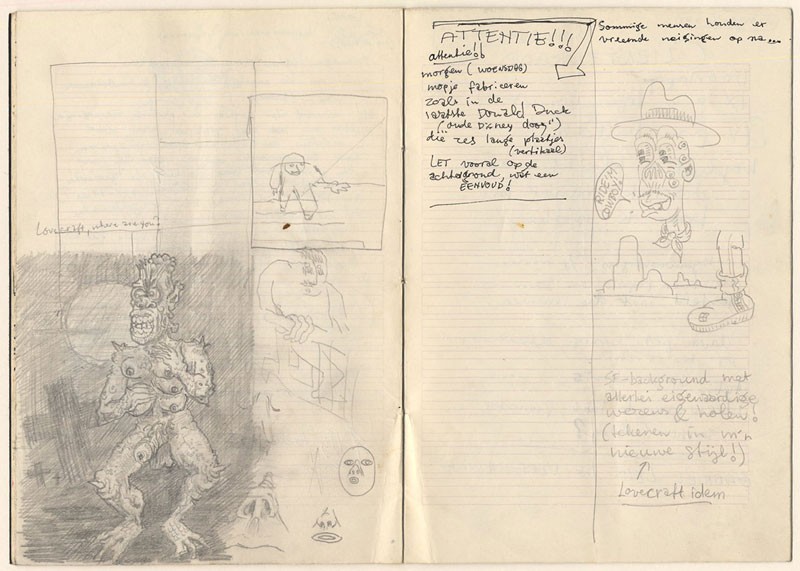 Lovecraft, where are you?
ATTENTIE!!!
attentie!!
morgen (WOENSDAG)
mopje fabriceren
zoals in de
laatste Donald Duck
("oude Disney doos")
die zes lange plaatjes
(vertikaal)
LET vooral op de
achtergrond, wat een
EENVOUD!
Sommige mensen houden er
vreemde neigingen op na...
RIDE 'M
COWBOY!
SF-background met
allerlei eigenaardige
wezens & holen!
(tekenen in m'n
nieuwe stijl!)
Lovecraft idem